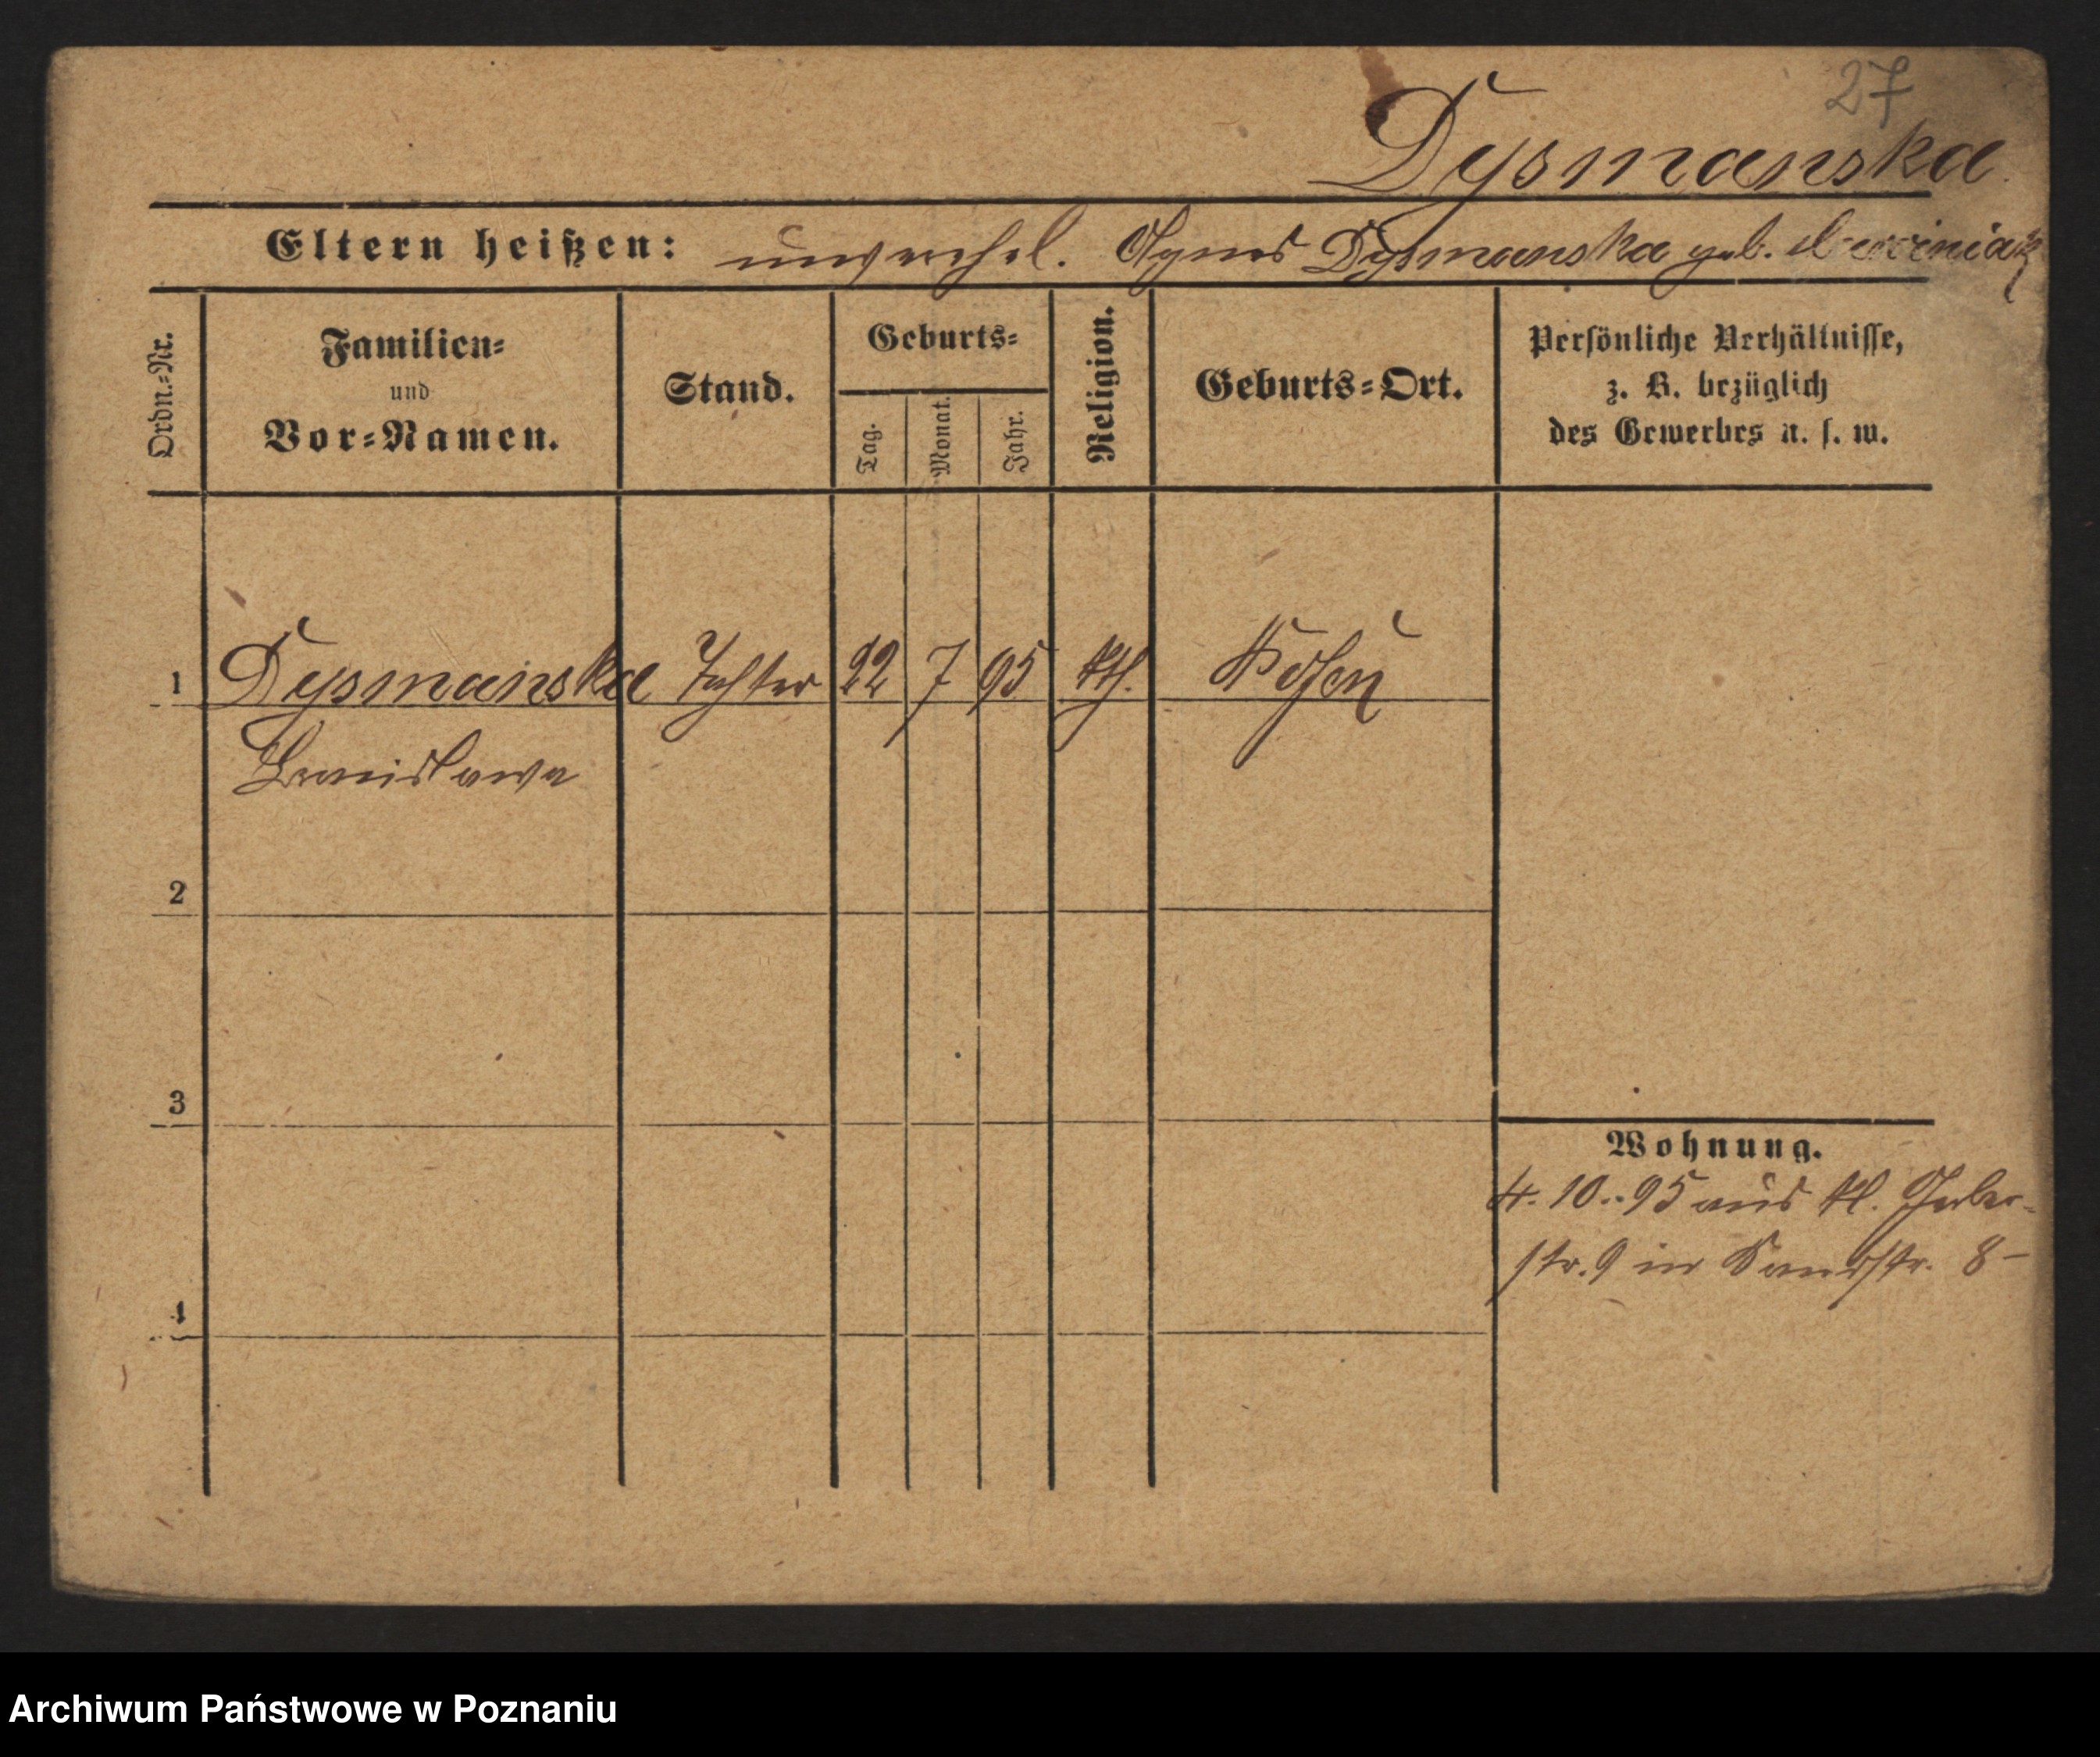 27
Dysmanska
Eltern heißen: unverehel. Agnes Dysmanska geb.
Ordn.-Nr.
Familien-
und
Vor-Namen.
Stand.
Geburts-
Tag.
Monat.
Jahr.
Religion.
Geburts-Ort.
Persönliche Verhältnisse,
z. B. bezüglich
des Gewerbes u. s. w.
1 Dysmanska Tochter 22 7 95 kth. Posen
Bronislawa
2
3
4
Wohnung.
4. 10. 95 aus kl. Gerber-
str. 9 in Sandstr. 8
Archiwum Państwowe w Poznaniu